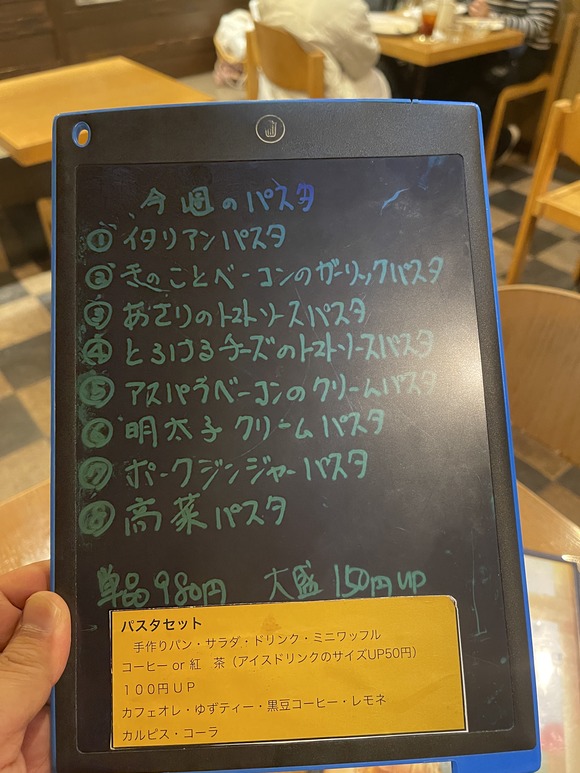 今週のパスタ
① イタリアンパスタ
② きのことベーコンのガーリックパスタ
③ あさりのトマトソースパスタ
④ とろけるチーズのトマトソースパスタ
⑤ アスパラベーコンのクリームパスタ
⑥ 明太子クリームパスタ
⑦ ポークジンジャーパスタ
⑧ 高菜パスタ
単品980円 大盛150円UP
パスタセット
手作りパン・サラダ・ドリンク・ミニワッフル
コーヒー or 紅 茶(アイスドリンクのサイズUP50円)
100円UP
カフェオレ・ゆずティー・黒豆コーヒー・レモネ
カルピス・コーラ